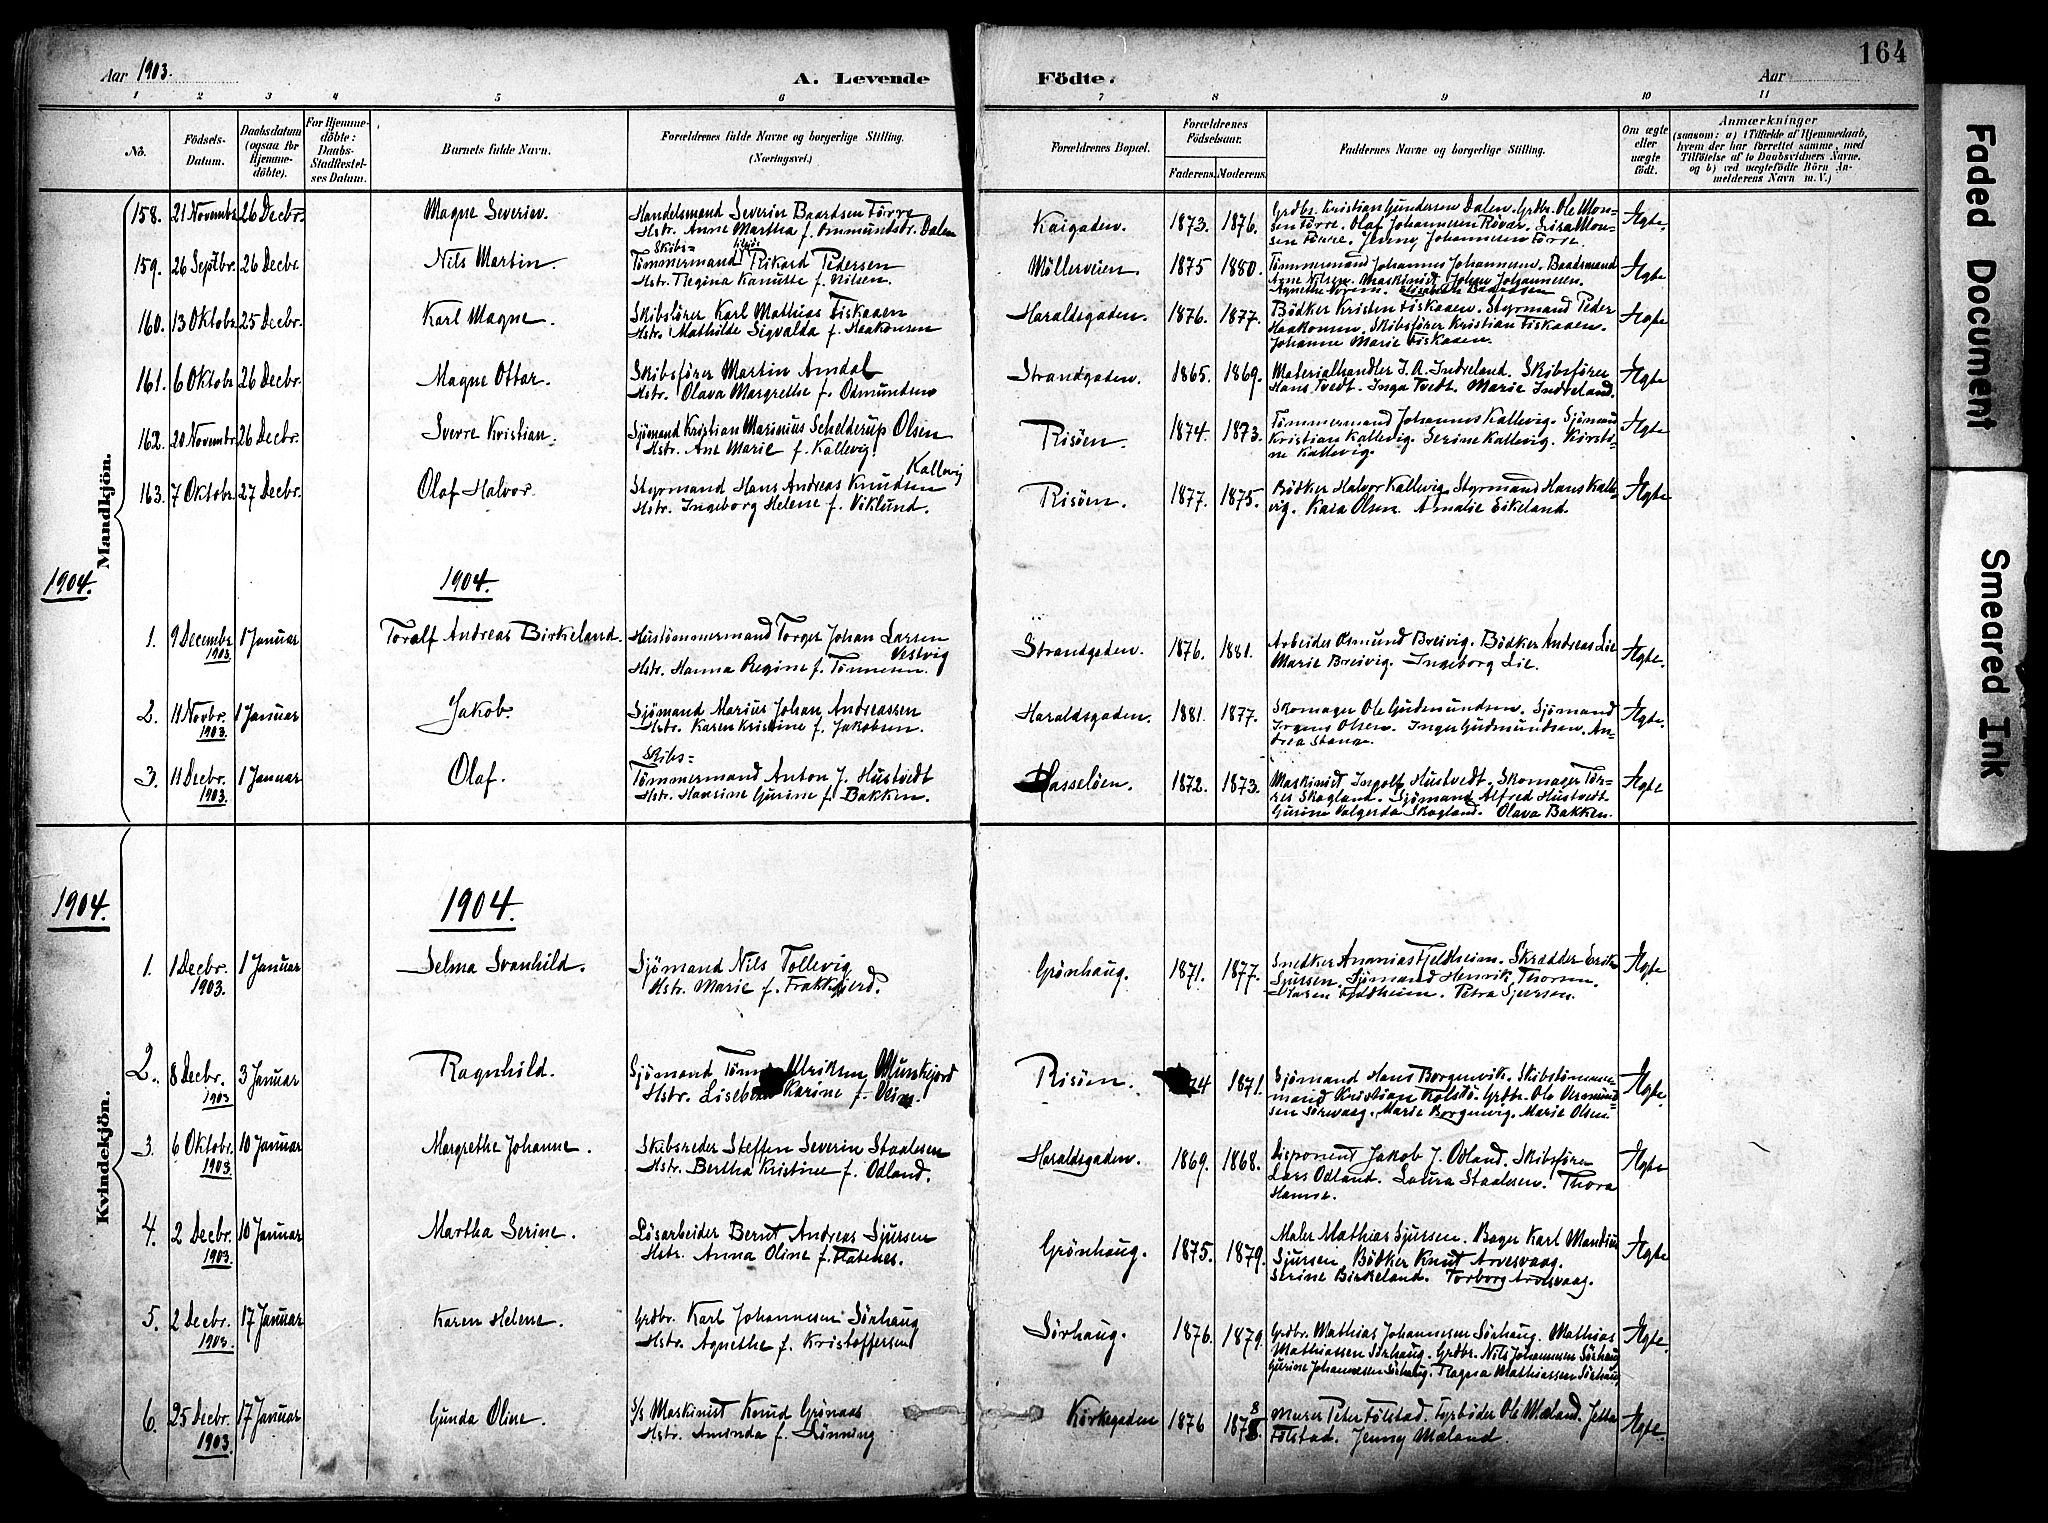 Aar 1903.
A. Levende
Födte.
Aar
164
1 2 3 4 5 6 7 8 9 10 11
No.
Födsels-
Datum.
Daabsdatum
(ogsaa for
Hjemme-
döbte).
For Hjemme-
döbte:
Daabs-
Stadfæstel-
ses Datum.
Barnets fulde Navn.
Forældrenes fulde Navne og borgerlige Stilling.
(Næringsvei.)
Forældrenes Bopæl.
Forældrenes
Födselsaar.
Faderens. Moderens.
Faddernes Navne og borgerlige Stilling.
Om ægte
eller
uægte
födt.
Anmærkninger
(saasom: a) i Tilfælde af Hjemmedaab,
hvem der har forrettet samme, med
Tilföielse af to Daabsvidners Navne,
og b) ved uægtefödte Börn An-
melderens Navn m. V.)
Mandkjön.
158. 21 Novembr. 26 Decbr. Magne Severin.
Handelsmand Severin Baardsen Förre
Hstr. Anne Martha f. Ommundsdtr. Dalen
Kaigaden. 1873. 1876.
Grdbr. Kristian Gundersen Dalen. Grdbr. Ole Mon-
sen Förre. Olaf Johannesen Rövær. Lisa Mon-
sen Förre. Jenny Johannesen Förre.
Ægte.
159. 26 Septbr. 26 Decbr. Nils Martin.
Skibs-
Tömmermand Rikard Pedersen
Hstr. Regina Kanutte f. Nilsen.
Möllerveien. 1875 1880.
Tömmermand Johannes Johannesen. Baadsmand
Arne Nilsen. Maskinist Johan Johannesen.
Agnethe Norem. Elisabeth Baardsen
Ægte
160. 13 Oktobr. 25 Decbr. Karl Magne.
Skibsförer Karl Mathias Fiskaaen
Hstr. Mathilde Sigvalda f. Haakonsen
Haraldsgaden. 1876. 1877.
Bödker Kristen Fiskaaen. Styrmand Peder
Haakonsen. Skibsförer Kristian Fiskaaen.
Johanne Marie Fiskaaen.
Ægte
161. 6 Oktobr. 26 Decbr. Magne Ottar.
Skibsförer Martin Amdal
Hstr. Olava Margrethe f. Osmundsen
Strandgaden. 1865. 1869.
Materialhandler J. A. Indreland. Skibsförer
Hans Tvedt. Inga Tvedt. Marie Indreland.
Ægte
162. 20 Novembr. 26 Decbr. Sverre Kristian.
Sjömand Kristian Marinius Schelderup Olsen
Hstr. Ane Marie f. Kallevig.
Risöen. 1874. 1873.
Tömmermand Johannes Kallevig. Sjömand
Kristian Kallevig. Serine Kallevig. Kirsti-
ne Kallevig.
Ægte
163. 7 Oktobr. 27 Decbr. Olaf Halvor.
Kallevig
Styrmand Hans Andreas Knudsen
Hstr. Ingeborg Helene f. Viklund.
Risöen. 1877. 1875.
Bödker Halvor Kallevig. Styrmand Hans Kalle-
vig. Kaia Olsen. Amalie Eikeland.
Ægte
1904. 1904.
1. 9 Decembr. 1903. 1 Januar Toralf Andreas Birkeland.
Hustömmermand Torger Johan Larsen
Vestvig
Hstr. Hanna Regine f. Tönnesen
Strandgaden. 1876. 1881.
Arbeider Osmund Breivig. Bödker Andreas Lie
Marie Breivig. Ingeborg Lie.
Ægte.
2. 11 Novbr. 1903. 1 Januar Jakob.
Sjömand Marius Johan Andreassen
Hstr. Karen Kristine f. Jakobsen.
Haraldsgaden. 1881. 1877.
Skomager Ole Gudmundsen. Sjömand
Jrgens Olsen. Inger Gudmundsen. An-
Ægte.
3. 11 Decbr. 1903. 1 Januar Olaf.
Skibs-
Tömmermand Anton J. Hustvedt
Hstr. Hansine Gurine f. Bakken.
Hasselöen. 1872. 1873.
Maskinist Ingolf Hustvedt. Skomager Tör-
res Skogland. Sjömand Alfred Hustvedt
Gurine Valgerda Skogland. Olava Bakken.
Ægte
Kvindekjön.
1904. 1904.
1. 1 Decbr. 1903. 1 Januar Selma Svanhild.
Sjömand Nils Tollevig
Hstr. Marie f. Frakkfjerd.
Grönhaug. 1871. 1877.
Snedker Ananias Fjeldheim. Skrædder Erik
Sjursen. Sjömand Henrik Thorsen.
Maren Fjeldheim. Petra Sjursen.
Ægte.
2. 8 Decbr. 1903 3 Januar Ragnhild.
Sjömand Ulriksen Munkejord
Hstr. Karine f. Veim.
Risöen. 1871.
Sjömand Hans Borgenvik. Skibstömmer-
mand Kristian Kolstö. Grdbr. Ole Vermund-
sen Sörevaag. Marie Borgenvig. Marie Olsen.
Ægte.
3. 6 Oktobr. 1903. 10 Januar Margrethe Johanne.
Skibsreder Steffen Severin Staalesen
Hstr. Bertha Kristine f. Odland.
Haraldsgaden. 1869. 1868.
Disponent Jakob J. Odland. Skibsförer
Lars Odland. Laura Staalesen. Thora
Hamre.
Ægte
4. 2 Decbr. 1903. 10 Januar Martha Serine.
Lösarbeider Bernt Andreas Sjursen
Hstr. Anna Oline f. Flatenes.
Grönhaug. 1875. 1879.
Maler Mathias Sjursen. Bager Karl Mandius
Sjursen. Bödker Knut Arvesvaag.
Serine Birkeland. Torborg Arvesvaag.
Ægte
5. 2 Decbr. 1903. 17 Januar Karen Helene.
Grdbr. Karl Johannesen Sörhaug
Hstr. Agnethe f. Kristoffersen
Sörhaug. 1876. 1879.
Grdbr. Mathias Johannesen Sörhaug. Mathias
Mathiassen Sörhaug. Grdbr. Nils Johannesen Sörhaug
Gurine Johannesen Sörhaug. Ragna Mathiassen Sörhaug
Ægte
6. 25 Decbr. 1903. 17 Januar Gunda Oline.
S/s Maskinist Knud Grönaas
Hstr. Aminda f. Lönning
Kirkegaden 1876 1878.
Murer Peter Fölstad. Fyrböder Ole Mæland. Jetta
Fölstad. Jenny Mæland.
Ægte.
Faded Document
Smeared Ink